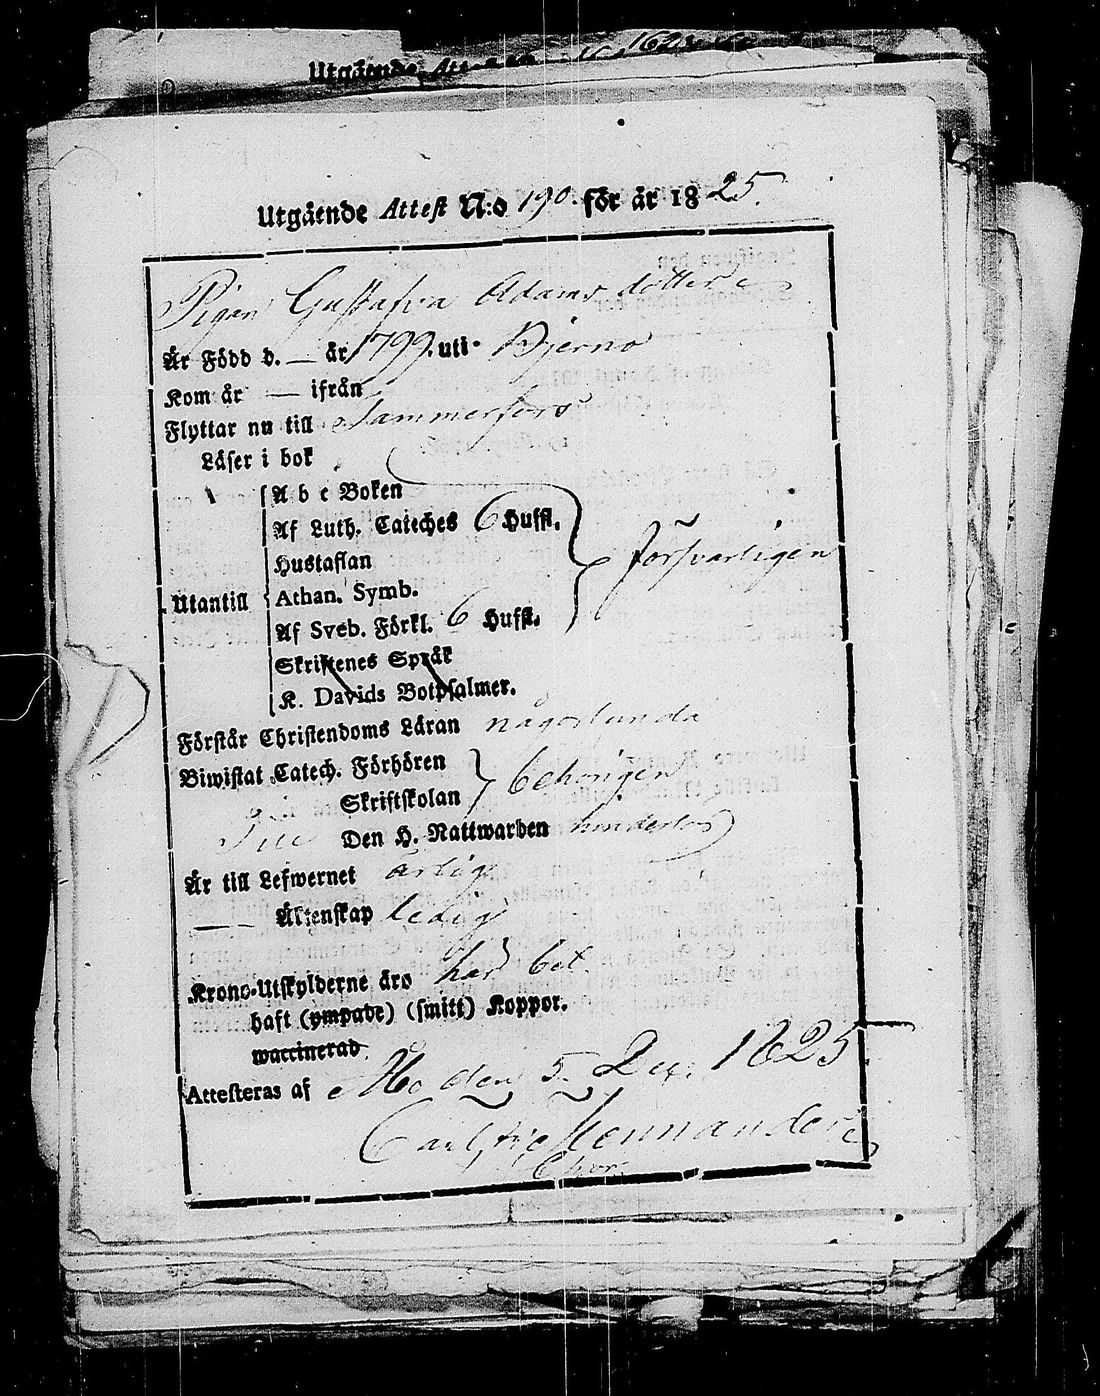 Utgående
Utgående Attest N:o 190. för år 1825.
Pigan Gustafva Adamsdotter
Är Född d. — år 1799. uti Bjerno
Kom år — ifrån
Flyttar nu till Tammerfors
Läser i bok
A b c Boken
Af Luth. Cateches 6 Huffl.
Hustaflan
försvarligen
Utantill
Athan. Symb.
Af Sveb. Förkl. 6 Huffl.
Skriftenes Språk
K. Davids Botpsalmer.
Förstår Christendoms Läran någorlunda
Biwistat Catech. Förhören
behörigen
Skriftskolan
Den H. Nattwarden
Är till Lefwernet ärlig
— — Äktenskap ledig
Krono-Utskylderne äro
haft (ympade) (smitt) Koppor. har bet.
waccinerad
Attesteras af Åbo den 5. Dec. 1825